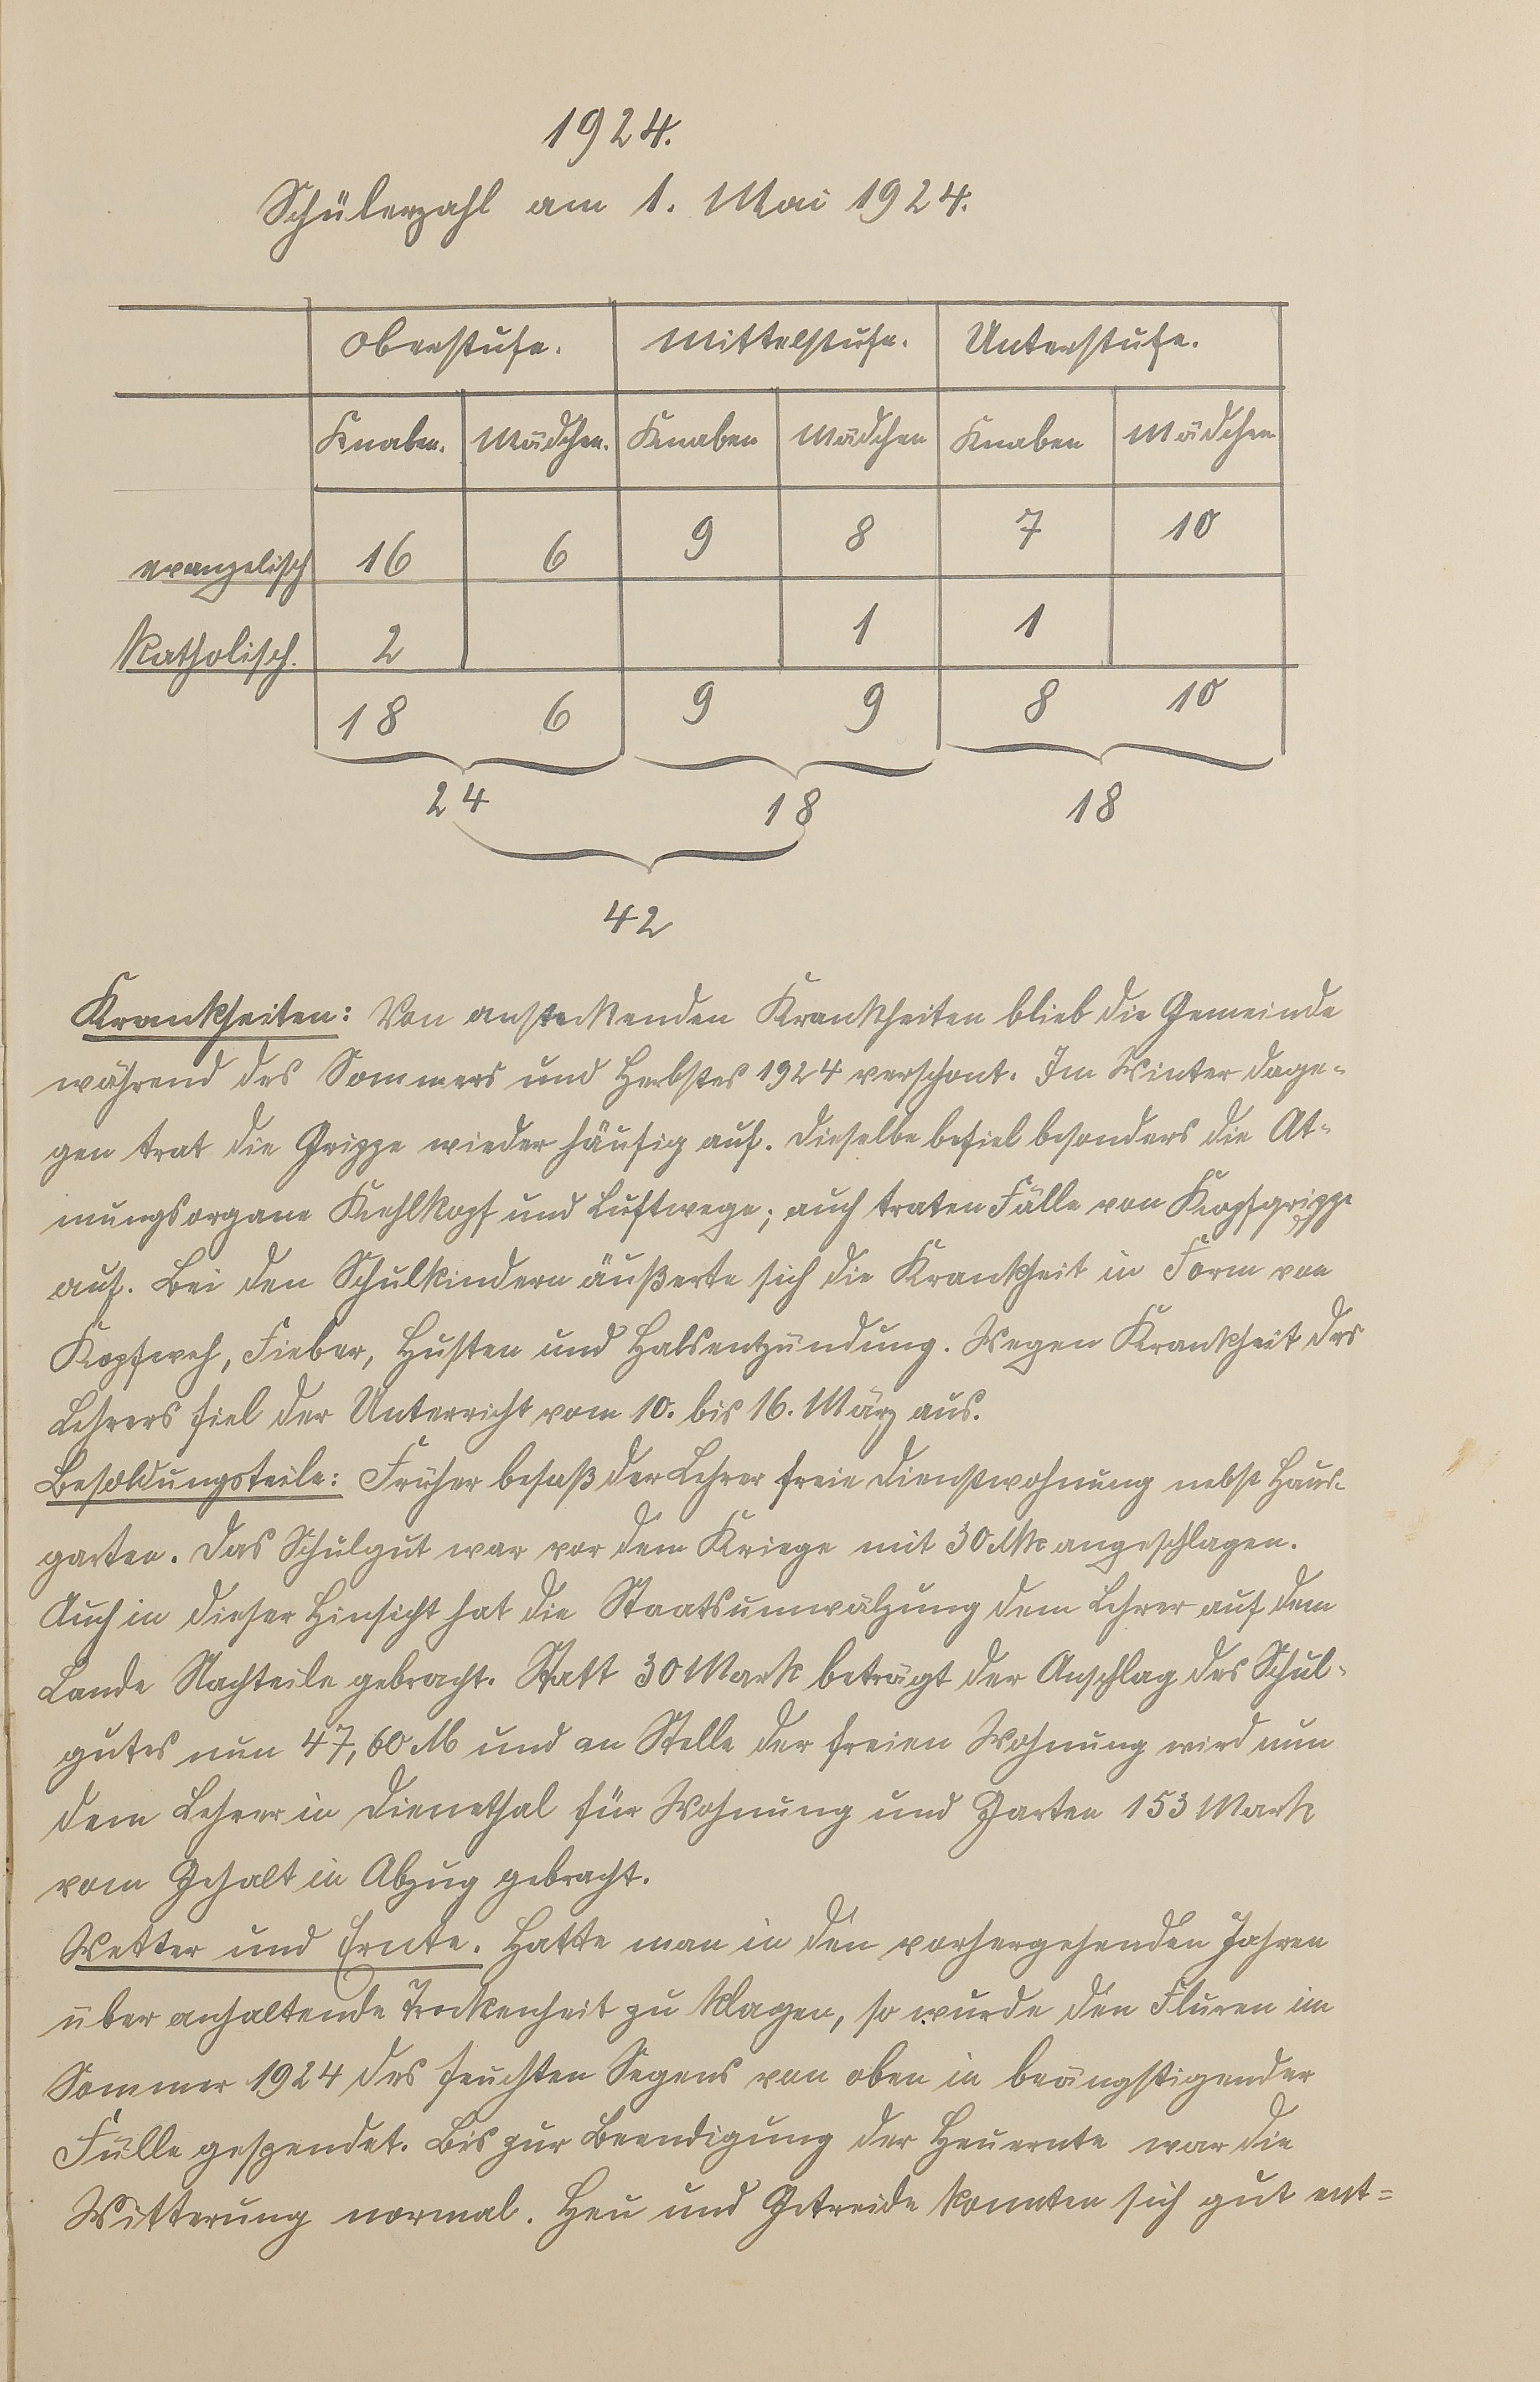 1924.
Schülerzahl am 1. Mai 1924.
Oberstufe. Mittelstufe. Unterstufe.
Knaben. Mädchen. Knaben Mädchen Knaben Mädchen
evangelisch 16 6 9 8 7 10
Katholisch. 2 1 1
18 6 9 9 8 10
24 18 18
42
Krankheiten: Von ansteckenden Krankheiten blieb die Gemeinde
während des Sommers und Herbstes 1924 verschont. Im Winter dage-
gen trat die Grippe wieder häufig auf. Dieselbe befiel besonders die At-
mungsorgane Kehlkopf und Luftwege; auch traten Fälle von Kopfgrippe
auf. Bei den Schulkindern äußerte sich die Krankheit in Form von
Kopfweh, Fieber, Husten und Halsentzündung. Wegen Krankheit des
Lehrers fiel der Unterricht vom 10. bis 16. März aus.
Besoldungsteile: Früher besaß der Lehrer freie Dienstwohnung nebst Haus-
garten. Das Schulgut war vor dem Kriege mit 30 Mk angeschlagen.
Auch in dieser Hinsicht hat die Staatsumwälzung dem Lehrer auf dem
Lande Nachteile gebracht. Statt 30 Mark beträgt der Anschlag des Schul-
gutes nun 47,60 M und an Stelle der freien Wohnung wird nun
dem Lehrer in Dienethal für Wohnung und Garten 153 Mark
vom Gehalt in Abzug gebracht.
Wetter und Ernte. Hatte man in den vorhergehenden Jahren
über anhaltende Trockenheit zu klagen, so wurde den Fluren im
Sommer 1924 des feuchten Segens von oben in beängstigender
Fülle gespendet. Bis zur Beendigung der Heuernte war die
Witterung normal. Heu und Getreide konnten sich gut ent=